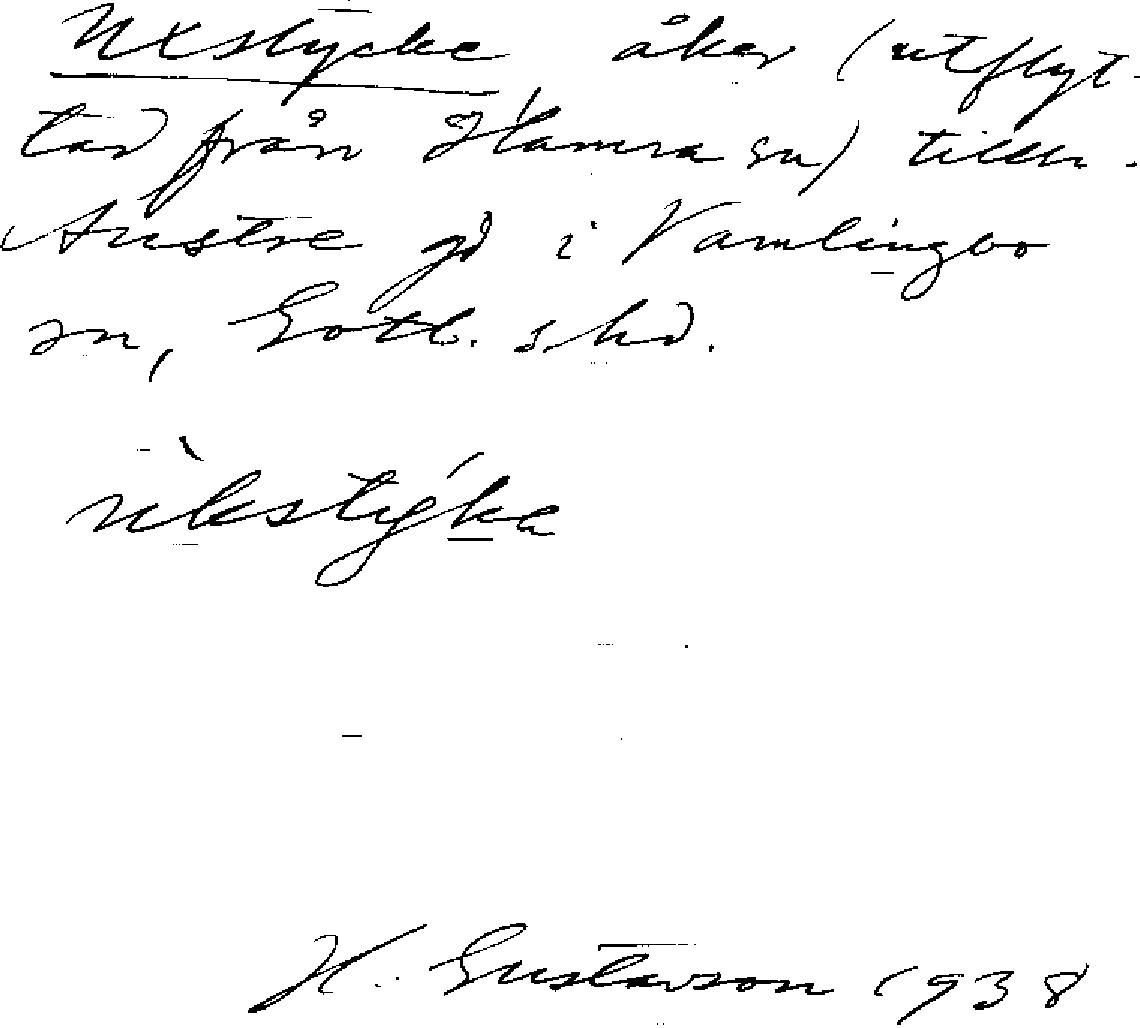 Uxstycke åker (utflyt-
tad från Hamra sn) tillh.
Austre gd i Vamlingbo
sn, Gotl. s. hd.
ùkstýka
H. Gustavson 1938